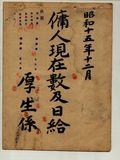 昭和十五年十二月
傭人現在數及日給
厚生係